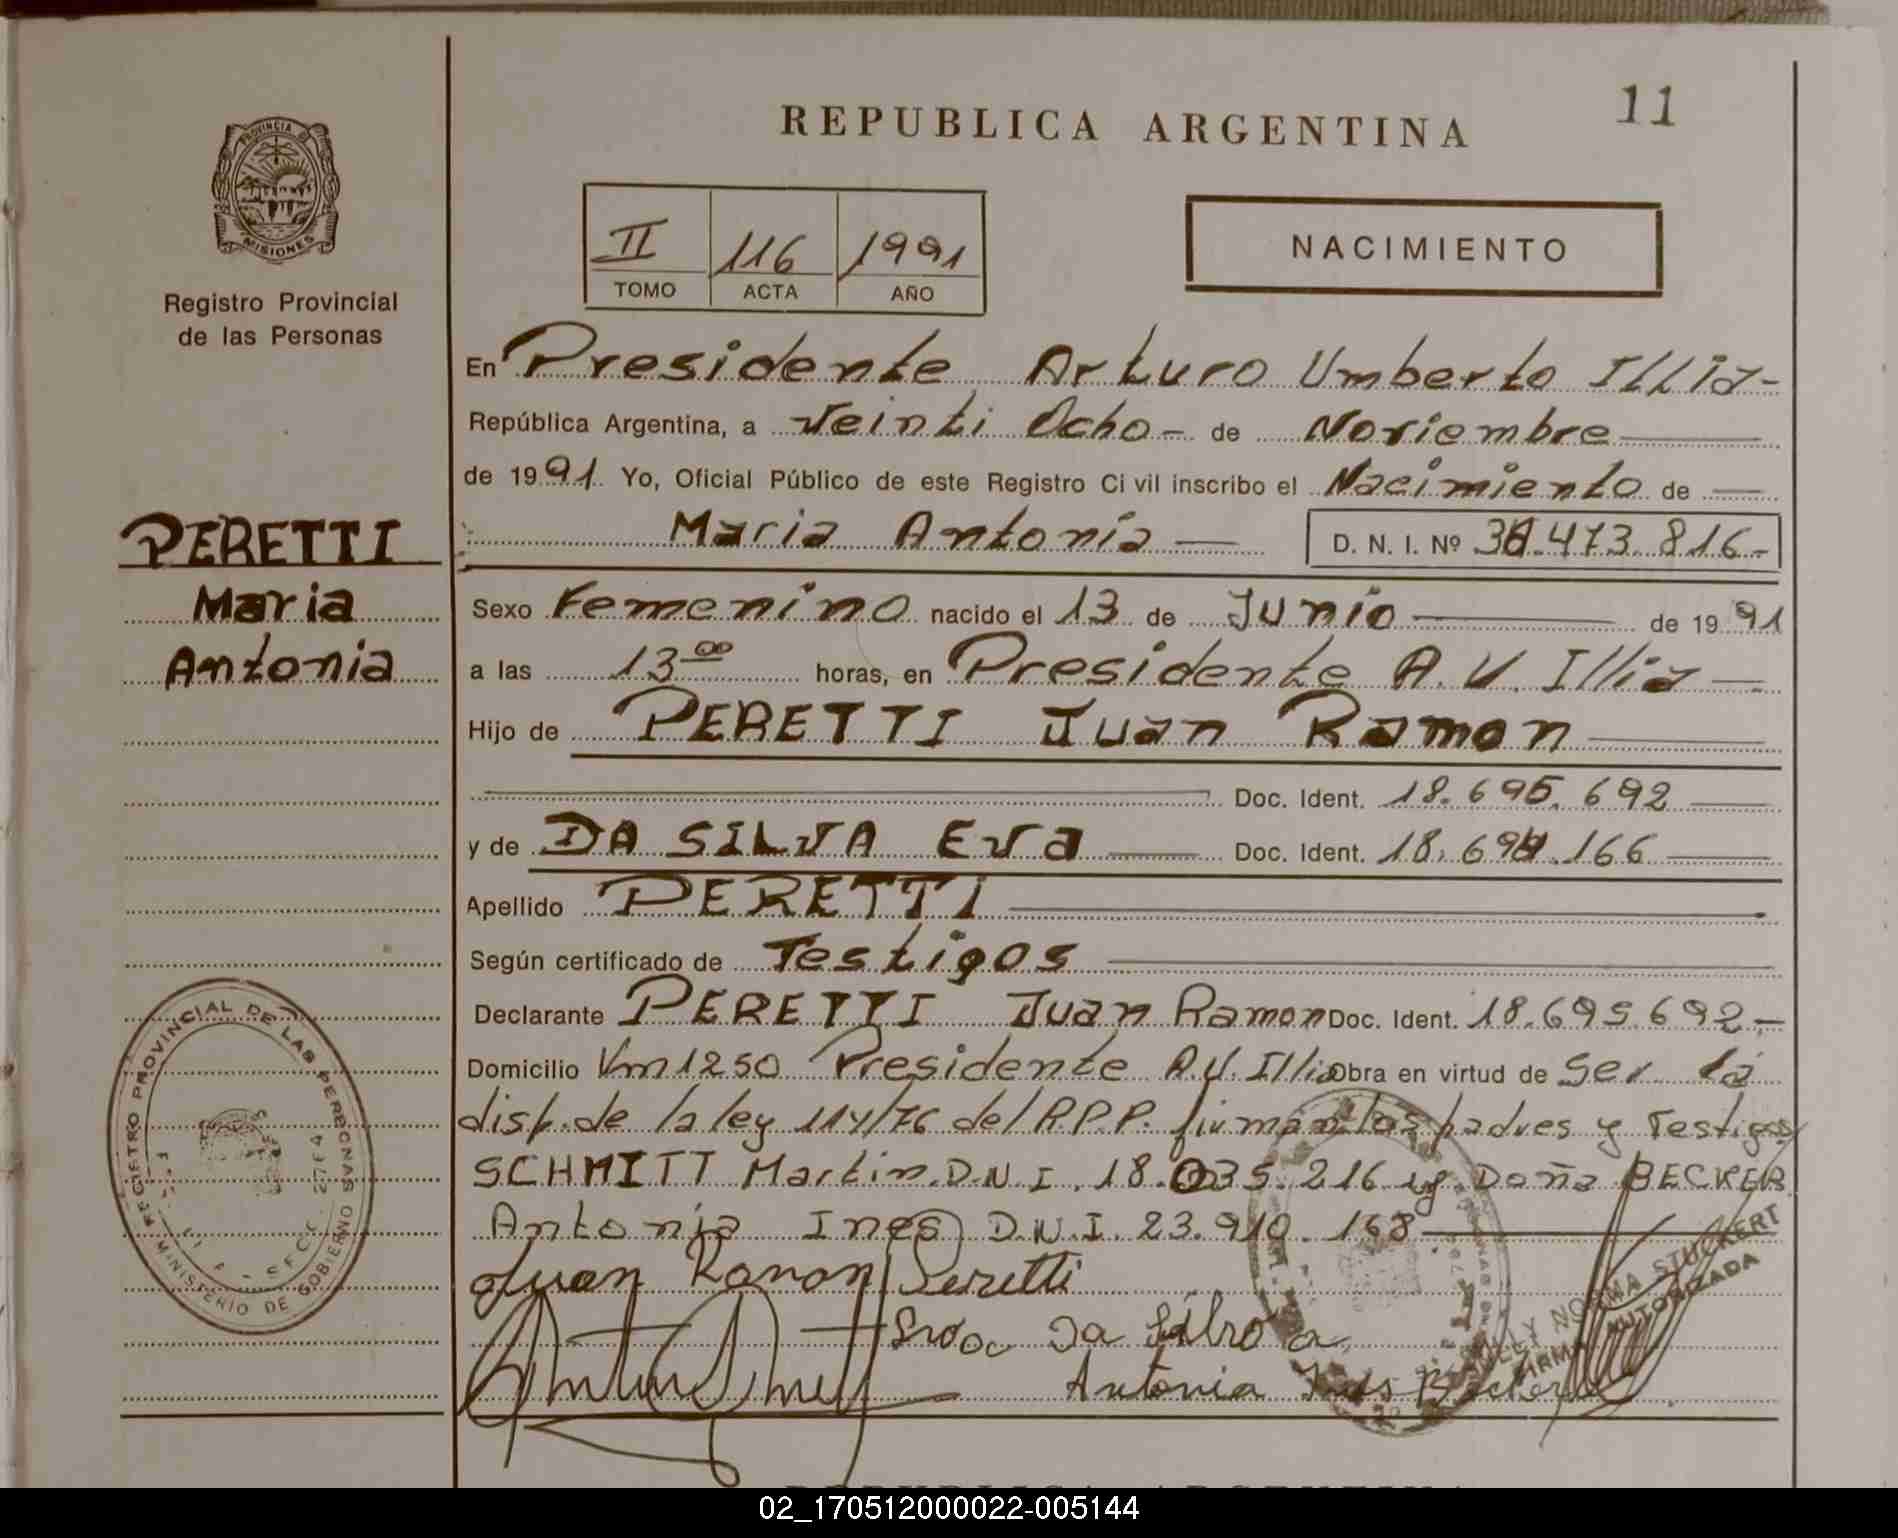 11
REPUBLICA ARGENTINA
PROVINCIA DE
MISIONES
Registro Provincial
de las Personas
II 116 1991
TOMO ACTA AÑO
NACIMIENTO
En Presidente Arturo Umberto Illia-
República Argentina, a Veinti Ocho- de Noviembre
de 1991. Yo, Oficial Público de este Registro Civil inscribo el Nacimiento de
Maria Antonia D. N. I. Nº .473.816-
PERETTI
Maria
Antonia
Sexo Femenino nacido el 13 de Junio de 1991
a las 13 00 horas, en Presidente A. U. Illia
Hijo de PERETTI Juan Ramon
Doc. Ident. 18.695.692
y de DA SILVA Eva Doc. Ident. 18.694.166
Apellido PERETTI
Según certificado de Testigos
Declarante PERETTI Juan Ramon Doc. Ident. 18.695.692-
Domicilio Km 1250 Presidente A.U. Illia Obra en virtud de Ser la
disp. de la ley 114/76 del R.P.P. firman los padres y Testigos
SCHMITT Martin D.N.I. 18.035.216 y Doña BECKER
Antonia Ines D.N.I. 23.910.168
Juan Ramon Peretti
Antonia Ines Becker
REGISTRO PROVINCIAL DE LAS PERSONAS
MINISTERIO DE GOBIERNO
NORMA STUCKERT
FIRMA AUTORIZADA
REPUBLICA ARGENTINA
02_170512000022-005144